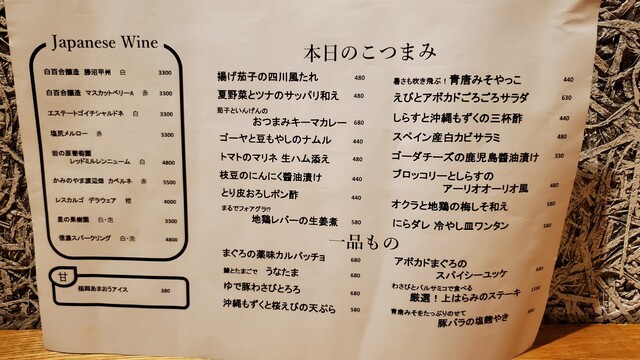 Japanese Wine
白百合醸造 勝沼甲州 白 3300
白百合醸造 マスカットベリーA 赤 3300
エステートゴイチシャルドネ 白 3300
塩尻メルロー 赤 3300
岩の原葡萄園
レッドミルレンニューム 白 4800
かみのやま渡辺畑 カベルネ 赤 5500
レスカルゴ デラウェア 橙 4000
星の果樹園 白・泡 3300
信濃スパークリング 白・泡 4800
甘
福岡あまおうアイス 380
本日のこつまみ
揚げ茄子の四川風たれ 480
夏野菜とツナのサッパリ和え 480
茄子といんげんの
おつまみキーマカレー 680
ゴーヤと豆もやしのナムル 440
トマトのマリネ 生ハム添え 480
枝豆のにんにく醤油漬け 440
とり皮おろしポン酢 440
まるでフォアグラ!?
地鶏レバーの生姜煮 580
暑さも吹き飛ぶ！青唐みそやっこ 440
えびとアボカドごろごろサラダ 630
しらすと沖縄もずくの三杯酢 440
スペイン産白カビサラミ 480
ゴーダチーズの鹿児島醬油漬け 330
ブロッコリーとしらすの
アーリオオーリオ風 480
オクラと地鶏の梅しそ和え 580
にらダレ 冷やし皿ワンタン 580
一品もの
まぐろの薬味カルパッチョ 680
鰻とたまごで うなたま 680
ゆで豚わさびとろろ 680
沖縄もずくと桜えびの天ぷら 580
アボカドまぐろの
スパイシーユッケ 680
わさびとバルサミコで食べる
厳選！上はらみのステーキ
青唐みそをたっぷりのせて
豚バラの塩麹やき